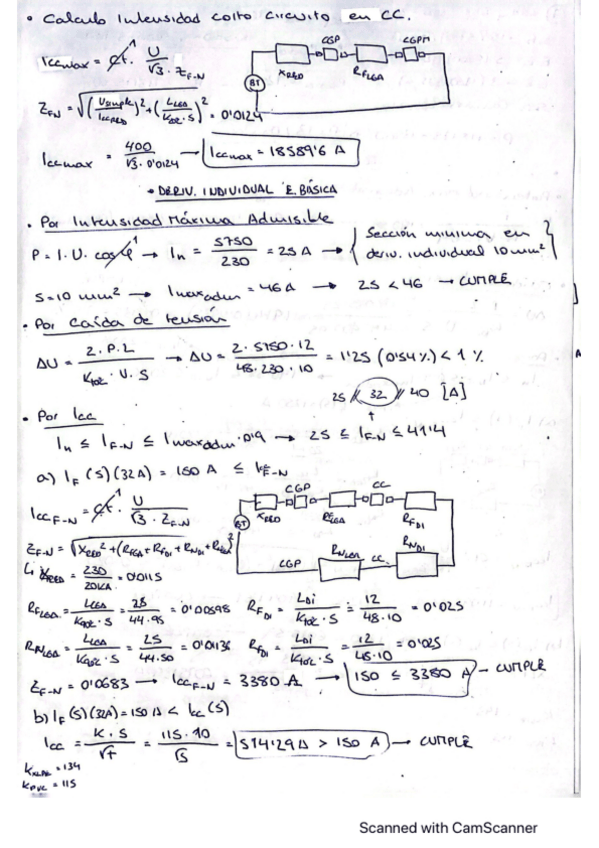 • Calculo Intensidad corto circuito en CC.
Iccmax = Ct. U / √3 · Z F-N
CGP
CGPM
XRED
RFLGA
BT
ZFN = √((Usimple/IccRED)² + (LLGA/K70ºC · S)²) = 0'0124
Iccmax = 400 / √3 · 0'0124 → Iccmax = 18589'6 A
• DERIV. INDIVIDUAL E. BÁSICA
• Por Intensidad Máxima Admisible
P = I · U · cos φ → In = 5750 / 230 = 25 A → { Sección mínima en deriv. individual 10 mm² }
S = 10 mm² → Imaxadm = 46 A → 25 < 46 → CUMPLE
• Por Caída de tensión
ΔU = 2 · P · L / K70ºC · U · S → ΔU = 2 · 5750 · 12 / 48 · 230 · 10 = 1'25 (0'54 %) < 1 %
25 // 32 // 40 [A]
• Por Icc
In ≤ IF-N ≤ Imaxadm · 0'9 → 25 ≤ IF-N ≤ 41'4
a) IF (5)(32A) = 150 A ≤ IF-N
CGP
CC
XRED
RFLGA
RFDI
BT
CGP
RNLGA
CC
RNDI
IccF-N = Ct. U / √3 · ZF-N
ZF-N = √XRED² + (RFLGA + RFDI + RNDI + RNLGA)²
↳ XRED = 230 / 20KA = 0'0115
RFLGA = LLGA / K70ºC · S = 25 / 44·95 = 0'00598 RFDI = LDI / K70ºC · S = 12 / 48·10 = 0'025
RNLGA = LLGA / K70ºC · S = 25 / 44·50 = 0'01136 RFDI = LDI / K70ºC · S = 12 / 48·10 = 0'025
ZF-N = 0'0683 → IccF-N = 3380 A → 150 ≤ 3380 A → CUMPLE
b) IF (5)(32A) = 150 A < Icc (5)
Icc = K · S / √t = 115 · 10 / √5 = 514'29 A > 150 A → CUMPLE
KPVC = 115
Scanned with CamScanner